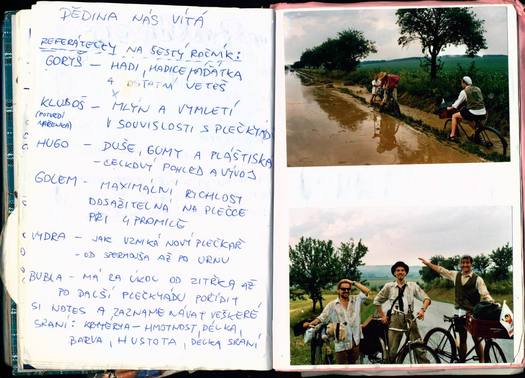 DĚDINA NÁS VÍTÁ
REFERÁTEČKY NA ŠESTÝ ROČNÍK:
GORYŠ – HADI, HADICE, HADÁTKA
A OSTATNÍ VETEŠ
KLUBOŠ – MLÝN A VYMLETÍ
V SOUVISLOSTI S PLEČKYÁDOU
HUGO – DUŠE, GUMY A PLÁŠTISKA
– CELKOVÝ POHLED A VÝVOJ
GOLEM – MAXIMÁLNÍ RICHLOST
DOSAŽITELNÁ NA PLEČCE
PŘI 4 PROMILE
VYDRA – JAK VZNIKÁ NOVÝ PLEČKAŘ
– OD SPERMOŠA AŽ PO URNU
BUBLA – MÁ ZA ÚKOL OD ZÍTŘKA AŽ
PO DALŠÍ PLEČKYÁDU POŘÍDIT
SI NOTES A ZAZNAMENÁVAT VEŠKERÉ
SRANÍ: KRITERIA – HMOTNOST, DÉLKA,
BARVA, HUSTOTA, DÉLKA SRANÍ